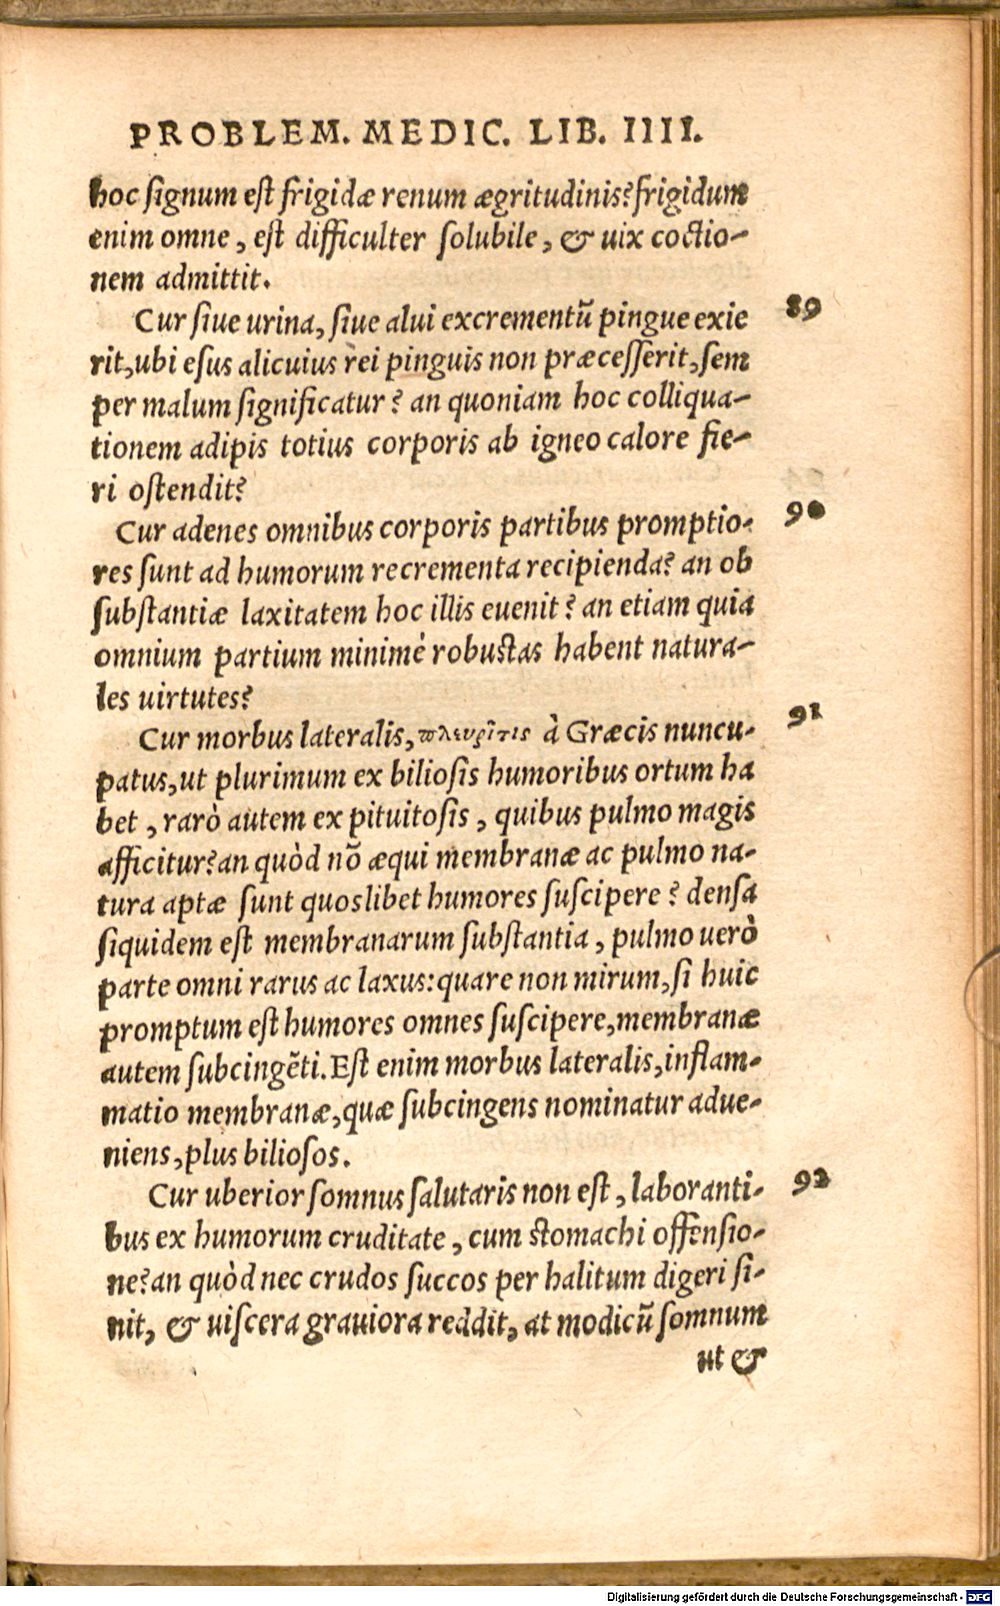 PROBLEM. MEDIC. LIB. IIII.
hoc ſignum eſt frigidæ renum ægritudinis? frigidum
enim omne, eſt difficulter ſolubile, & uix coctio-
nem admittit.
Cur ſiue urina, ſiue alui excrementũ pingue exie 89
rit, ubi eſus alicuius rei pinguis non præceſſerit, ſem
per malum ſignificatur? an quoniam hoc colliqua-
tionem adipis totius corporis ab igneo calore fie-
ri oſtendit?
Cur adenes omnibus corporis partibus promptio- 90
res ſunt ad humorum recrementa recipienda? an ob
ſubſtantiæ laxitatem hoc illis euenit? an etiam quia
omnium partium minimè robuſtas habent natura-
les uirtutes?
Cur morbus lateralis, πλευρῖτις à Græcis nuncu- 91
patus, ut plurimum ex bilioſis humoribus ortum ha
bet, rarò autem ex pituitoſis, quibus pulmo magis
afficitur? an quòd nõ æqui membranæ ac pulmo na-
tura aptæ ſunt quoslibet humores ſuſcipere? denſa
ſiquidem eſt membranarum ſubſtantia, pulmo uerò
parte omni rarus ac laxus: quare non mirum, ſi huic
promptum eſt humores omnes ſuſcipere, membranæ
autem ſubcingẽti. Eſt enim morbus lateralis, inflam-
matio membranæ, quæ ſubcingens nominatur adue-
niens, plus bilioſos.
Cur uberior ſomnus ſalutaris non eſt, laboranti- 92
bus ex humorum cruditate, cum ſtomachi offenſio-
ne? an quòd nec crudos ſuccos per halitum digeri ſi-
nit, & uiſcera grauiora reddit, at modicũ ſomnum
ut &
Digitalisierung gefördert durch die Deutsche Forschungsgemeinschaft - DFG